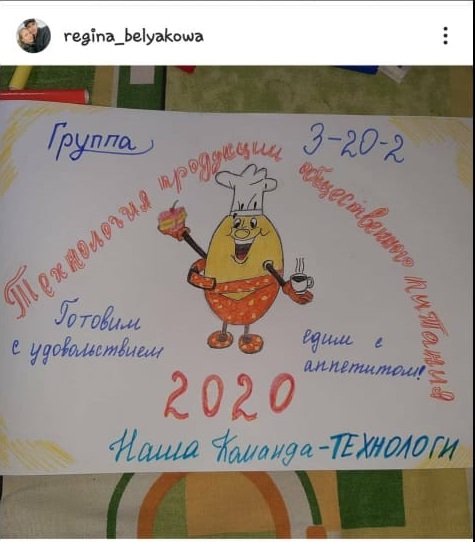 regina_belyakowa
Группа
З-20-2
Технология продукции общественного питания
Готовим
с удовольствием
едим с
аппетитом!
2020
Наша Команда-ТЕХНОЛОГИ